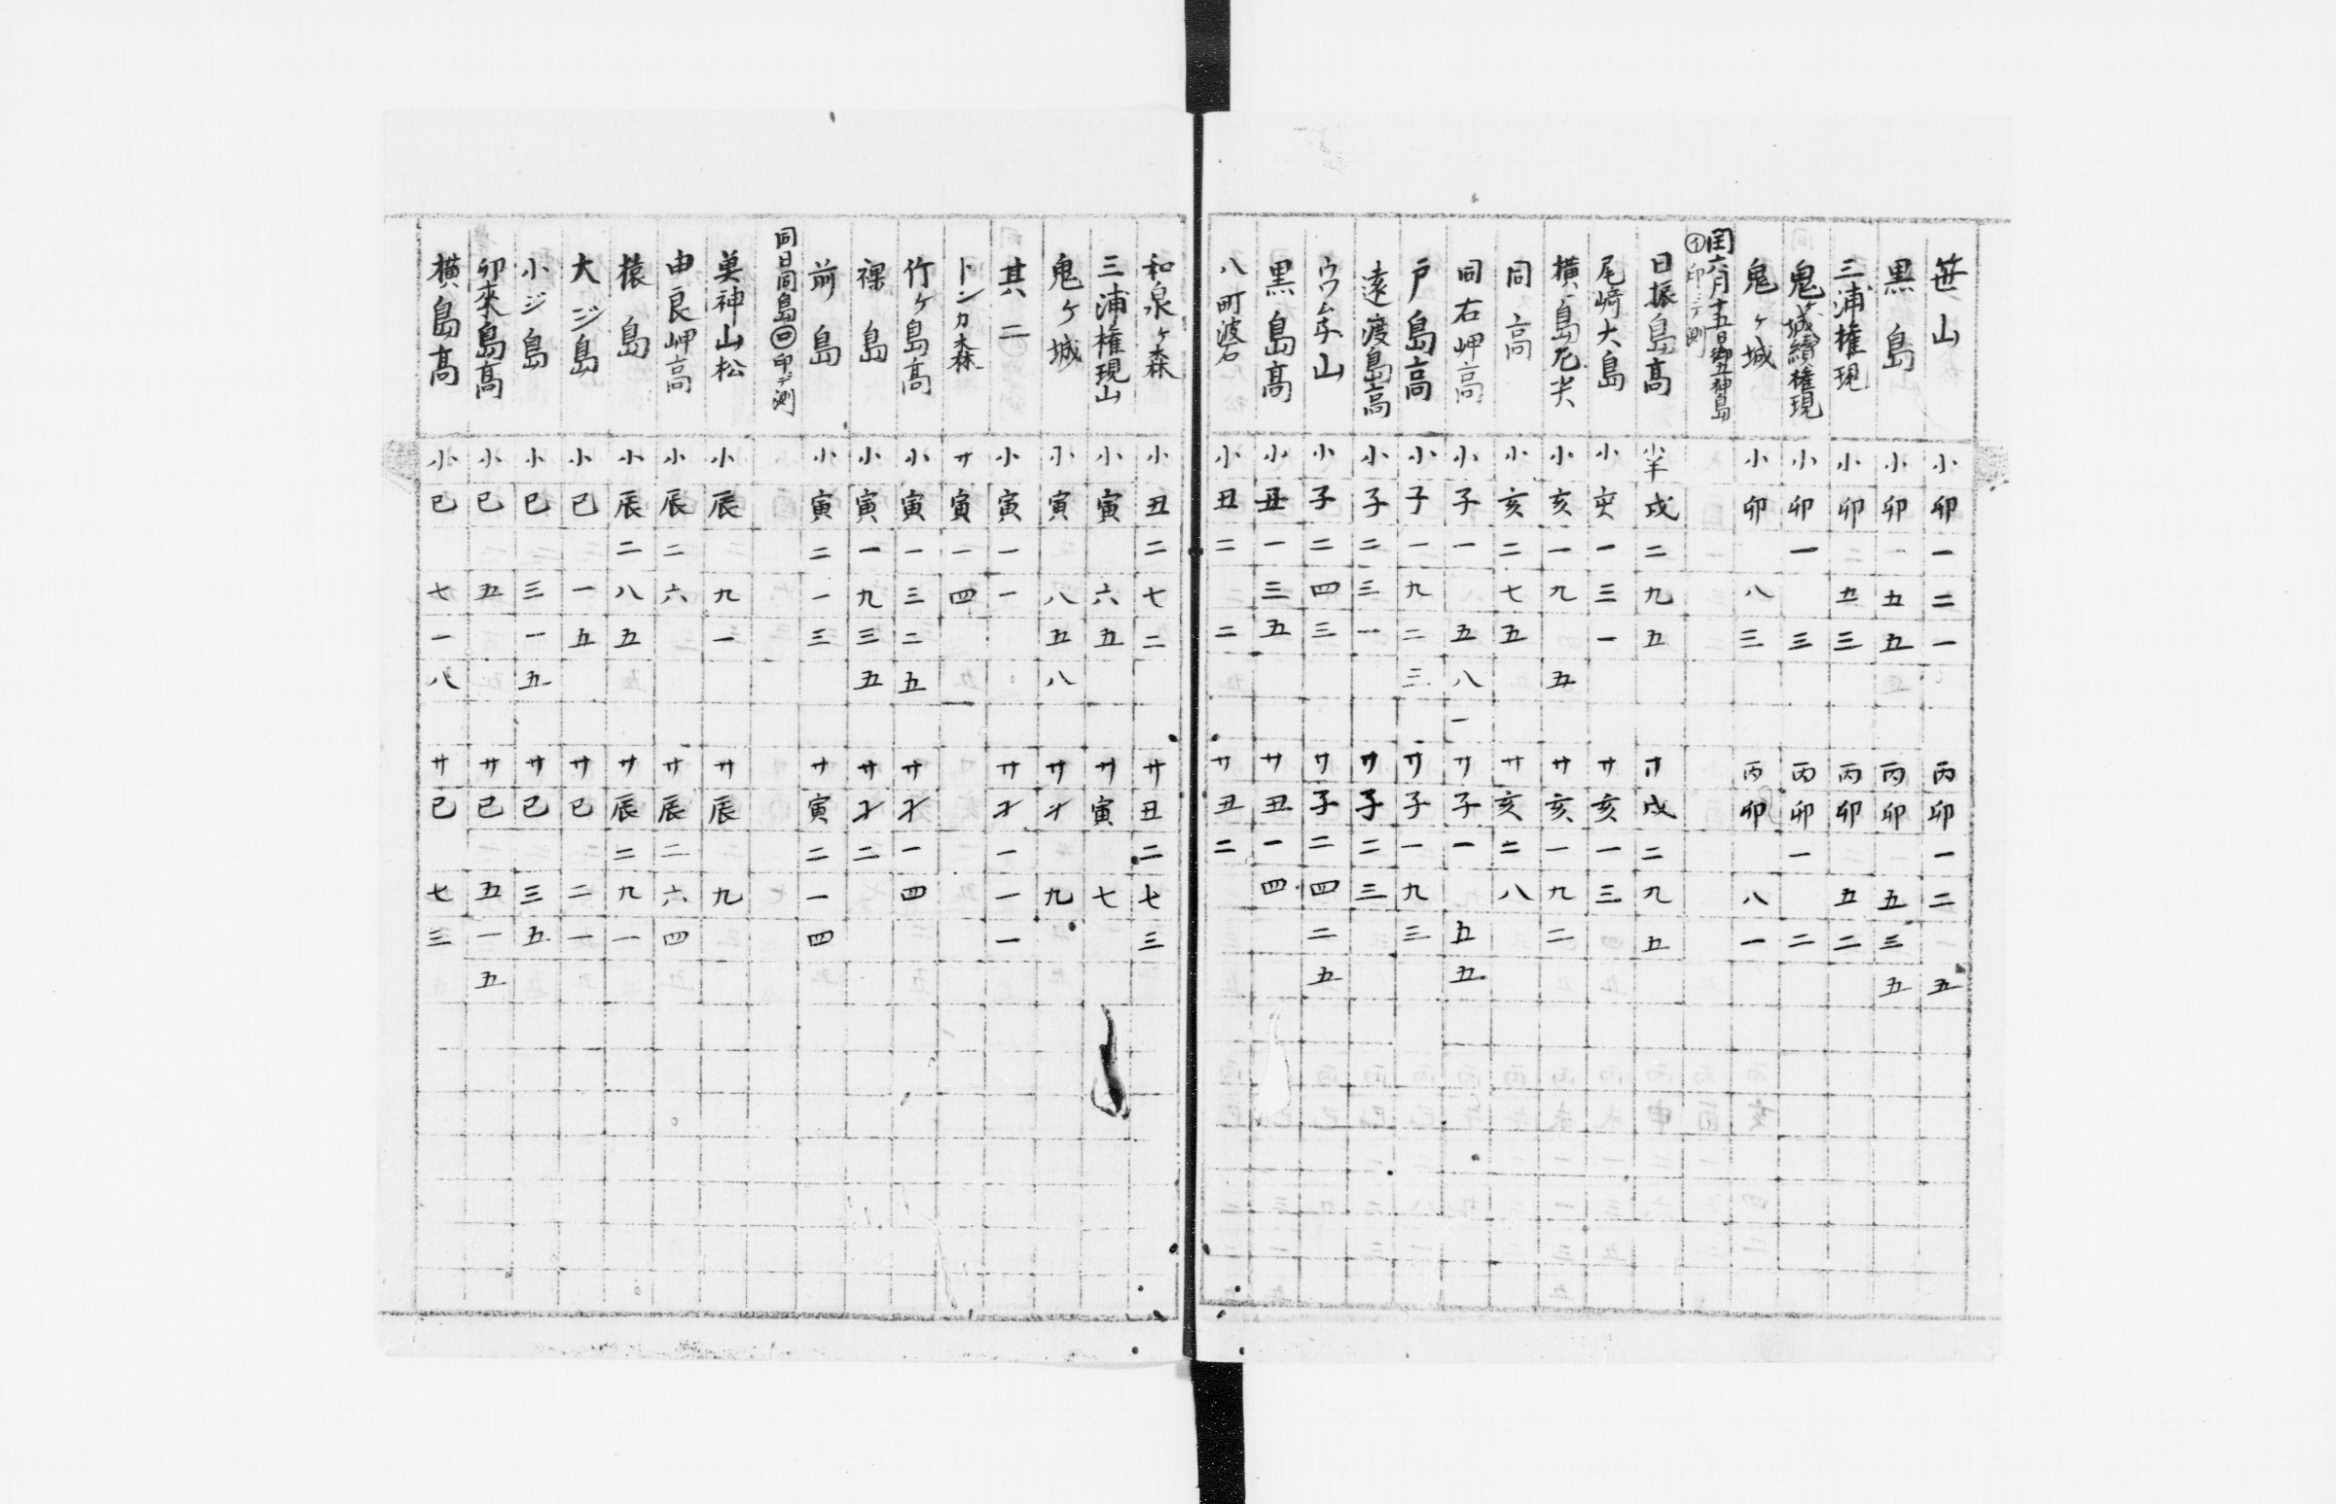 笹山 小卯一二一 丙卯一二 五
黒島 小卯 五五 丙卯 五三五
三浦権現 小卯 五三 丙卯 五二
鬼ヶ城續権現 小卯一 三 丙卯一 二
鬼ヶ城 小卯 八三 丙卯 八一
閏六月十五日御五神島
㋑印ニテ測
日振島高 小半戌二九五 サ戌二九五
尾﨑大島 小亥一三一 サ亥一三
横島尾尖 小亥一九 五 サ亥一九二
同高 小亥二七五 サ亥二八
同右岬高 小子一 五八一 サ子一 五五
戸島高 小子一九二三 サ子一九三
遠渡島高 小子二三一 サ子二三
山 小子二四三 サ子二四二五
黒島高 小丑一三五 サ丑一四
八町碆 小丑二 二 サ丑二
和泉ヶ森 小丑二七二 サ丑二七三
三浦権現山 小寅 六五 サ寅 七
鬼ヶ城 小寅 八五八 サ才 九
其二 小寅一一 サ才一一一
トンカ森 サ寅一四
竹ヶ島高 小寅一三二五 サ才一四
裸島 小寅一九三五 サ才二
前島 小寅二一三 サ寅二一四
同日同島㋺印ヂ測
神山松 小辰 九一 サ辰 九
由良岬高 小辰二六 サ辰二六四
猿島 小辰二八五 サ辰二九一
大ジ島 小巳 一五 サ巳 二一
小ジ島 小巳 三一五 サ巳 三五
卯來島高 小巳 五 サ巳 五一五
横島高 小巳 七一八 サ巳 七三